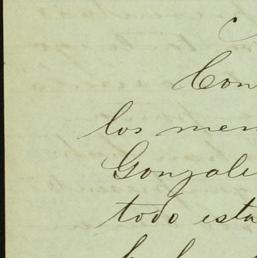 Con
los men
Gonzale
todo esta